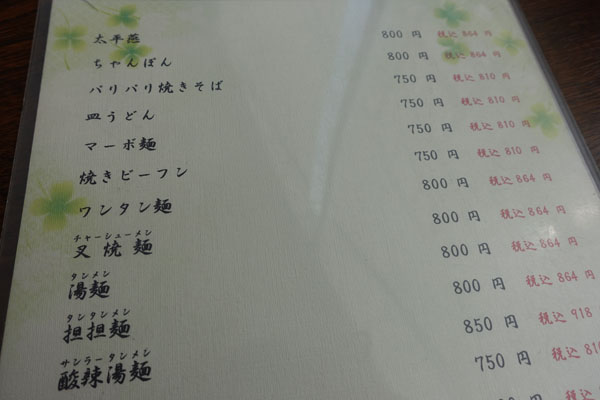 太平燕 800 円 税込 864 円
ちゃんぽん 800 円 税込 864 円
パリパリ焼きそば 750 円 税込 810 円
皿うどん 750 円 税込 810 円
マーボ麺 750 円 税込 810 円
焼きビーフン 750 円 税込 810 円
ワンタン麺 800 円 税込 864 円
チャーシューメン
叉焼麺 800 円 税込 864 円
タンメン
湯麺 800 円 税込 864 円
タンタンメン
担担麺 800 円 税込 864 円
サンラータンメン
酸辣湯麺 850 円 税込 918
750 円 税込 810